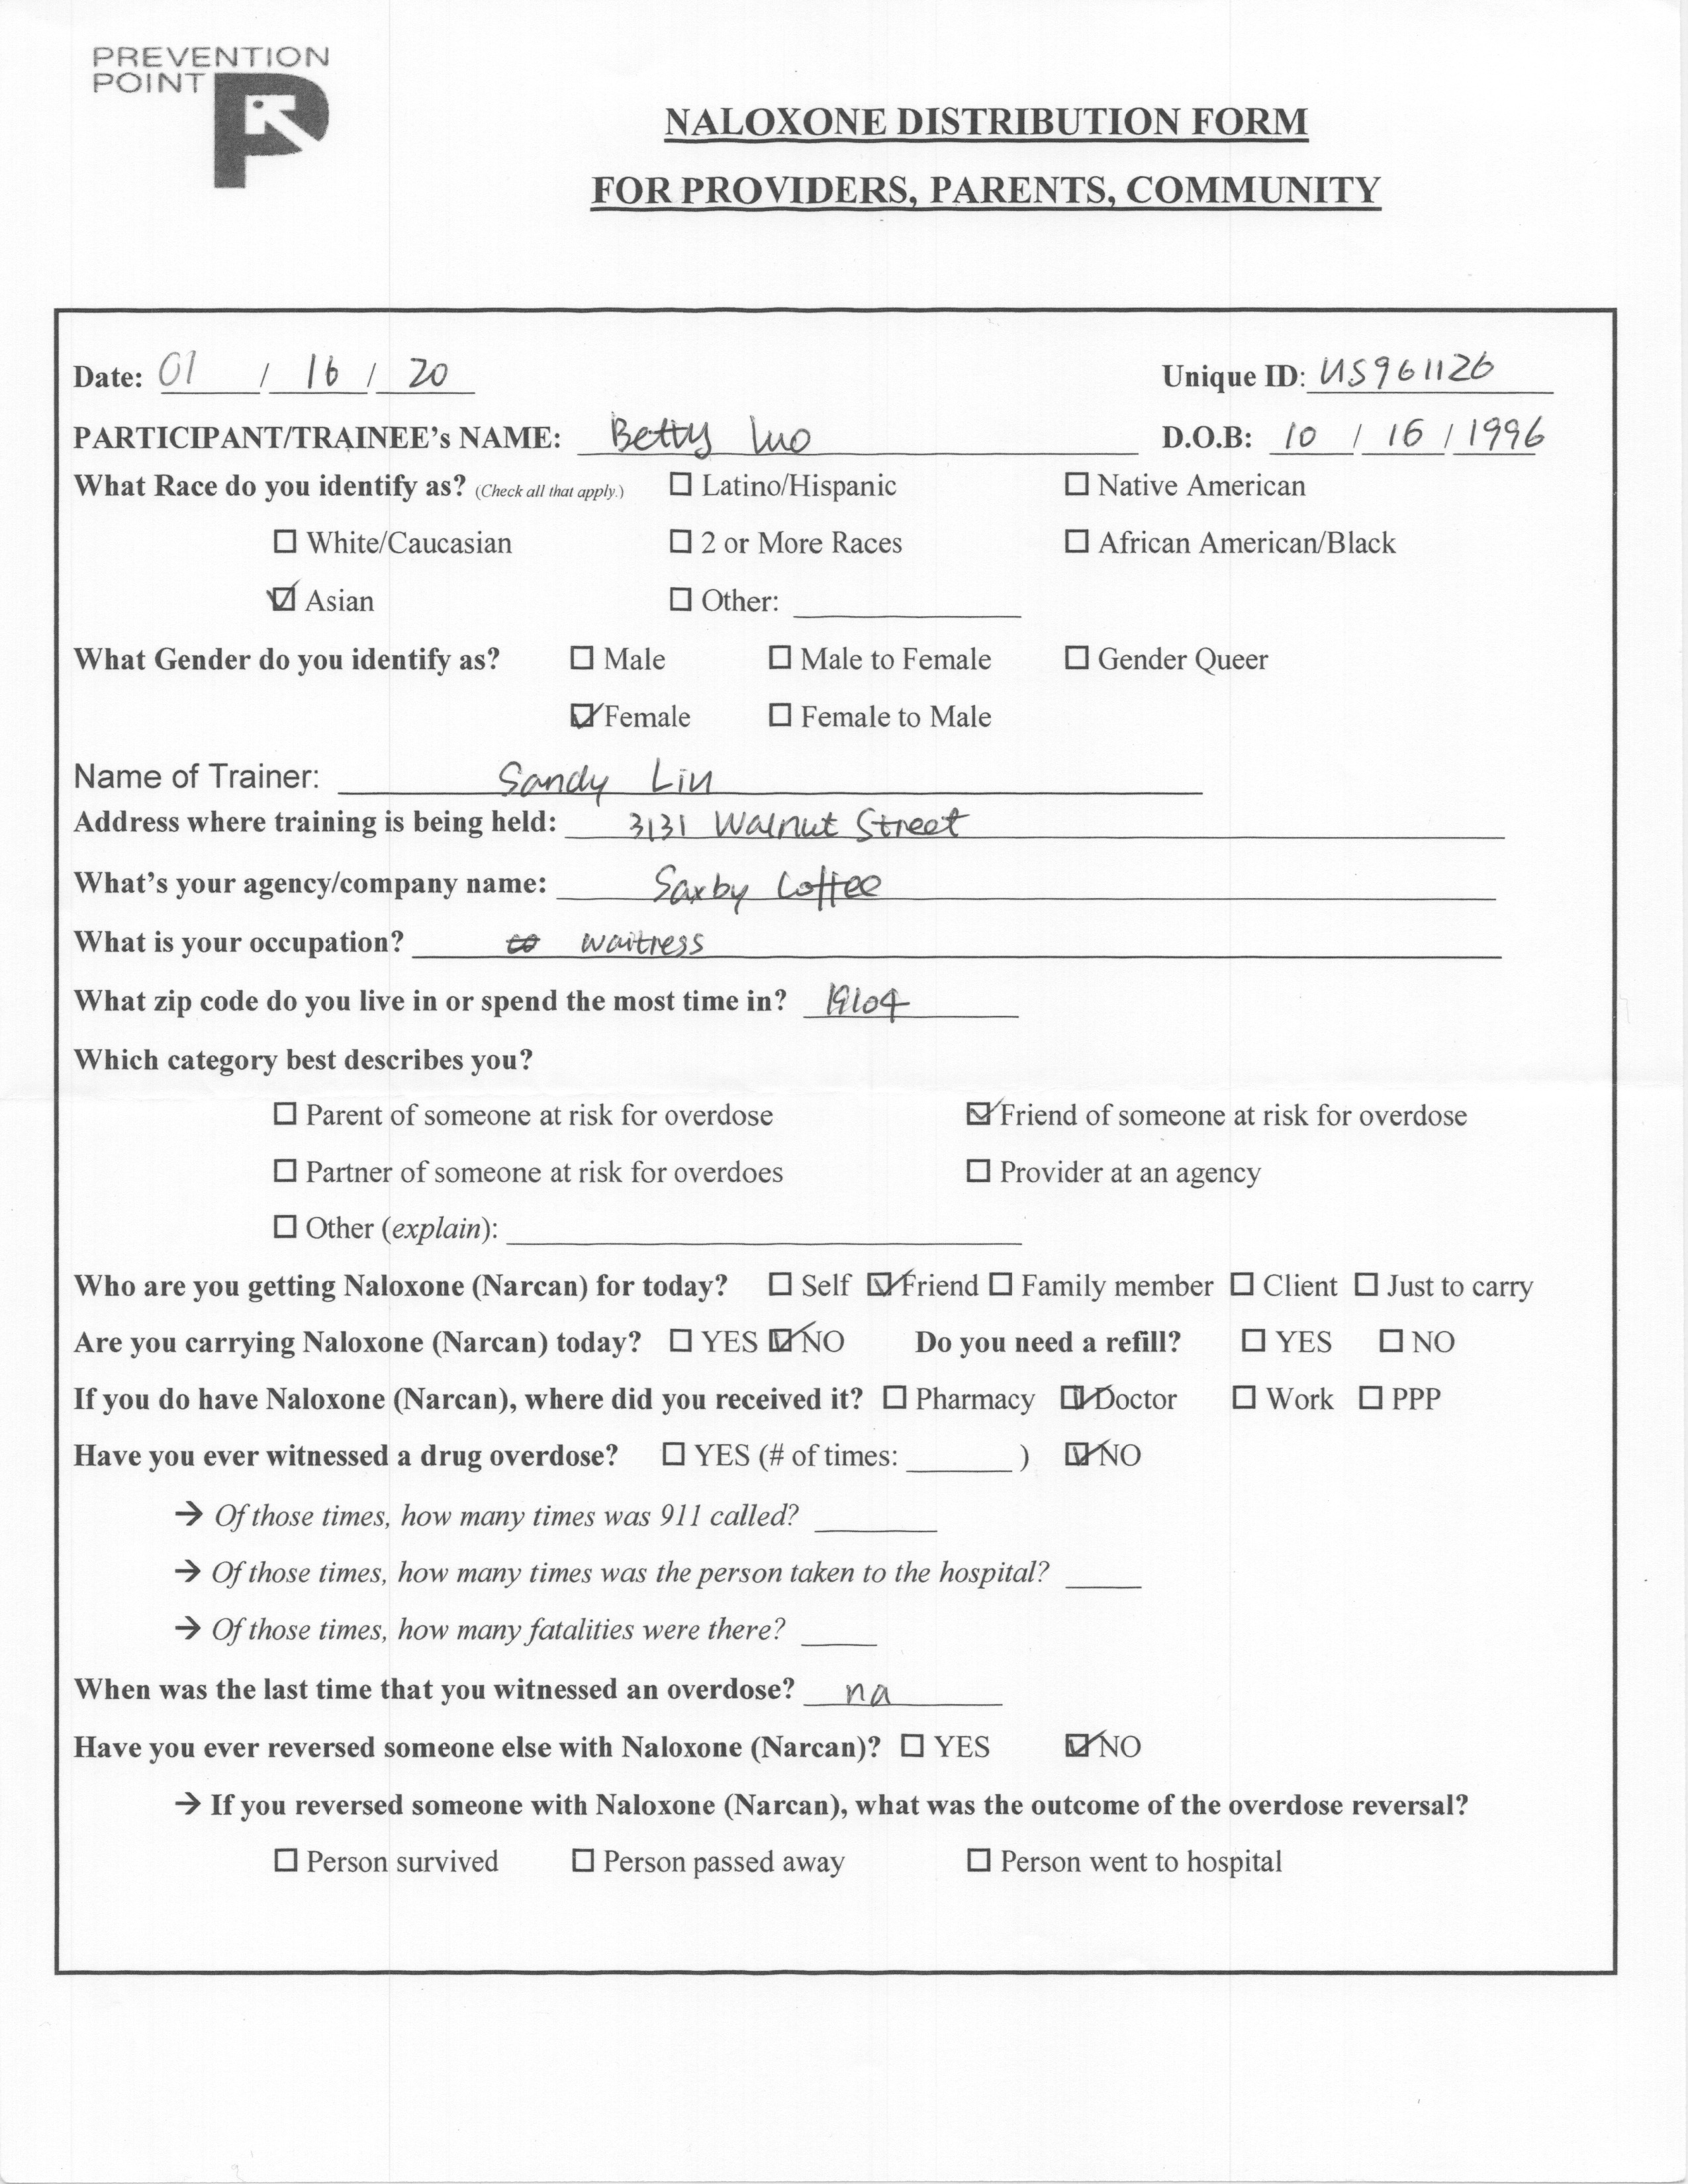 PREVENTION
POINT
NALOXONE DISTRIBUTION FORM
FOR PROVIDERS, PARENTS, COMMUNITY
Date: 01 / 16 / 20 Unique ID: US961126
PARTICIPANT/TRAINEE's NAME: Betty Luo D.O.B: 10 / 16 / 1996
What Race do you identify as? (Check all that apply.) ☐ Latino/Hispanic ☐ Native American
☐ White/Caucasian ☐ 2 or More Races ☐ African American/Black
☑ Asian ☐ Other:
What Gender do you identify as? ☐ Male ☐ Male to Female ☐ Gender Queer
☑ Female ☐ Female to Male
Name of Trainer: Sandy Liu
Address where training is being held: 3131 Walnut Street
What's your agency/company name: Saxby Coffee
What is your occupation? waitress
What zip code do you live in or spend the most time in? 19104
Which category best describes you?
☐ Parent of someone at risk for overdose ☑ Friend of someone at risk for overdose
☐ Partner of someone at risk for overdoes ☐ Provider at an agency
☐ Other (explain):
Who are you getting Naloxone (Narcan) for today? ☐ Self ☑ Friend ☐ Family member ☐ Client ☐ Just to carry
Are you carrying Naloxone (Narcan) today? ☐ YES ☑ NO Do you need a refill? ☐ YES ☐ NO
If you do have Naloxone (Narcan), where did you received it? ☐ Pharmacy ☑ Doctor ☐ Work ☐ PPP
Have you ever witnessed a drug overdose? ☐ YES (# of times: ) ☑ NO
→ Of those times, how many times was 911 called?
→ Of those times, how many times was the person taken to the hospital?
→ Of those times, how many fatalities were there?
When was the last time that you witnessed an overdose? na
Have you ever reversed someone else with Naloxone (Narcan)? ☐ YES ☑ NO
→ If you reversed someone with Naloxone (Narcan), what was the outcome of the overdose reversal?
☐ Person survived ☐ Person passed away ☐ Person went to hospital